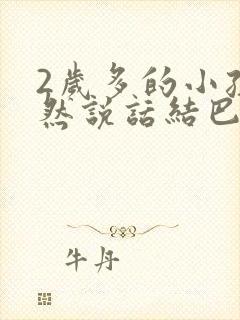 2歲多的小
然說話結巴
牛丹